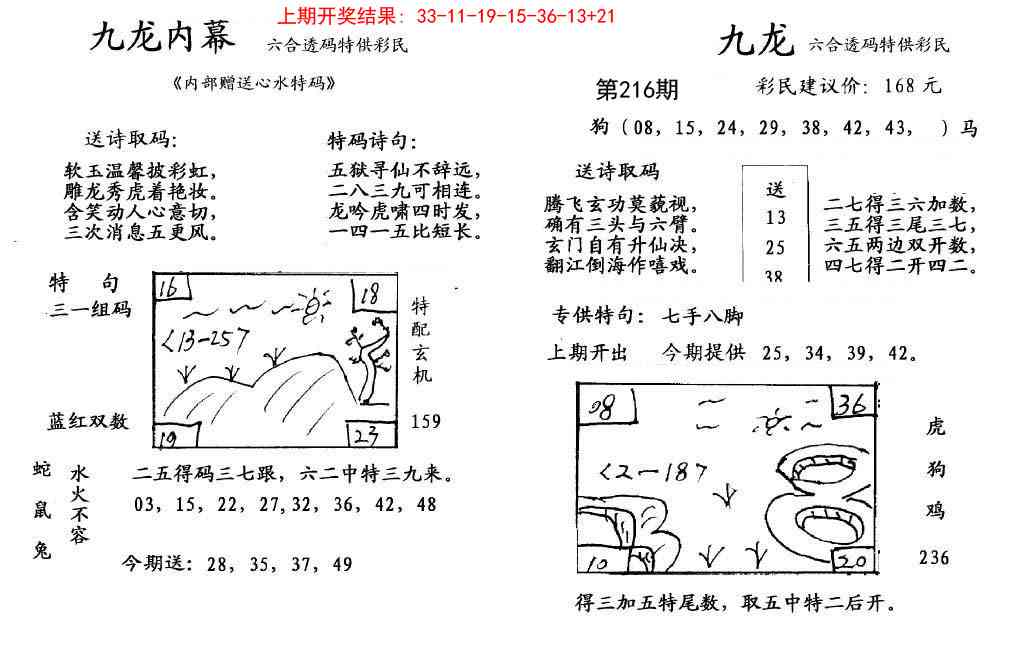 上期开奖结果：33-11-19-15-36-13+21
九龙内幕 六合透码特供彩民
《内部赠送心水特码》
送诗取码：
软玉温馨披彩虹，
雕龙秀虎着艳妆。
含笑动人心意切，
三次消息五更风。
特码诗句：
五狱寻仙不辞远，
二八三九可相连。
龙吟虎啸四时发，
一四一五比短长。
特 句
三一组码
蓝红双数
16
18
<13-257
19
23
特配玄机
159
蛇 鼠 兔
水火不容
二五得码三七跟，六二中特三九来。
03，15，22，27,32，36，42，48
今期送：28，35，37，49
九龙 六合透码特供彩民
第216期
彩民建议价：168元
狗（08，15，24，29，38，42，43， ）马
送诗取码
腾飞玄功莫藐视，
确有三头与六臂。
玄门自有升仙决，
翻江倒海作嘻戏。
送
13
25
38
二七得三六加数，
三五得三尾三七，
六五两边双开数，
四七得二开四二。
专供特句：七手八脚
上期开出 今期提供 25，34，39，42。
08
36
<2-187
10
20
虎
狗
鸡
236
得三加五特尾数，取五中特二后开。